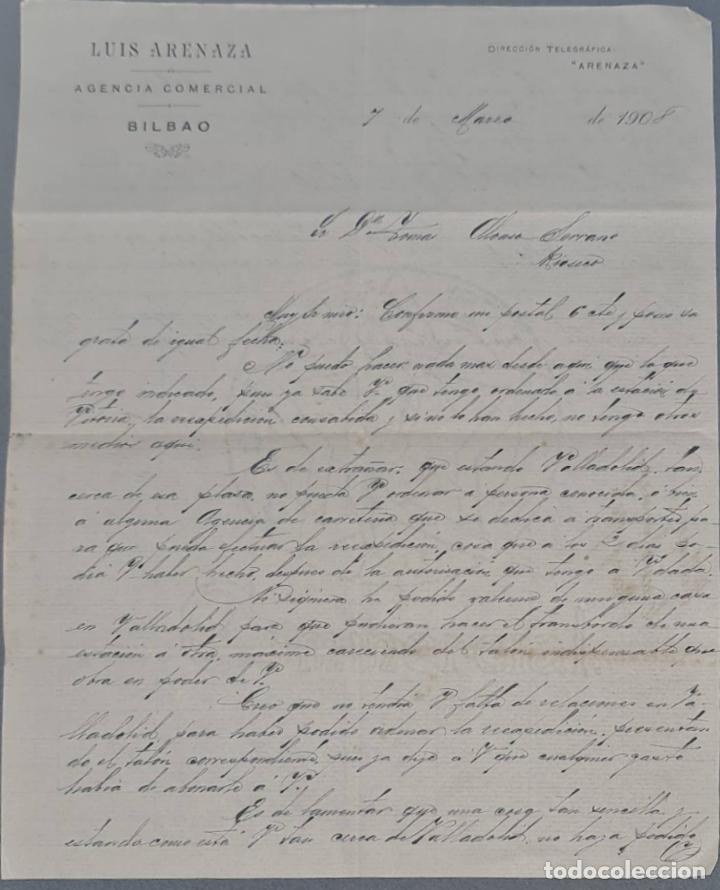 LUIS ARENAZA
AGENCIA COMERCIAL
BILBAO
DIRECCIÓN TELEGRÁFICA:
"ARENAZA"
7 de Marzo de 1908
Sr Dn Tomás Alonso Serrano
Rioseco
Muy Sr mio: Confirmo mi postal 6 cte y poseo su
grata de igual fecha.
No puedo hacer nada mas desde aqui, que lo que
tengo indicado, pues ya sabe V. que tengo ordenado á la estación de
la reexpedición consabida y si no lo han hecho, no tengo otros
medios aqui.
Es de extrañar, que estando Valladolid, tan
cerca de esa plaza, no pueda V. ordenar a persona conocida, ó
á alguna Agencia de que se dedica á transportes pa
ra que pueda efectuar la reexpedición, cosa que a los 3 dias po
dia V. haber hecho, despues de la autorización que tengo á V. dada.
Ni siquiera ha podido valerme de ninguna casa
en Valladolid para que pudieran hacer el transbordo de una
estación á otra, máxime careciendo del talón indispensable que
obra en poder de V.
Creo que no tendria V. falta de relaciones en Va-
lladolid, para haber podido ordenar la reexpedición, presentan
do el talón correspondiente, pues ya dije á V. que cualquier gasto
habia de abonarle á V.
Es de lamentar que una cosa tan sencilla y
estando como está V. tan cerca de Valladolid, no haya podido
todocoleccion.net